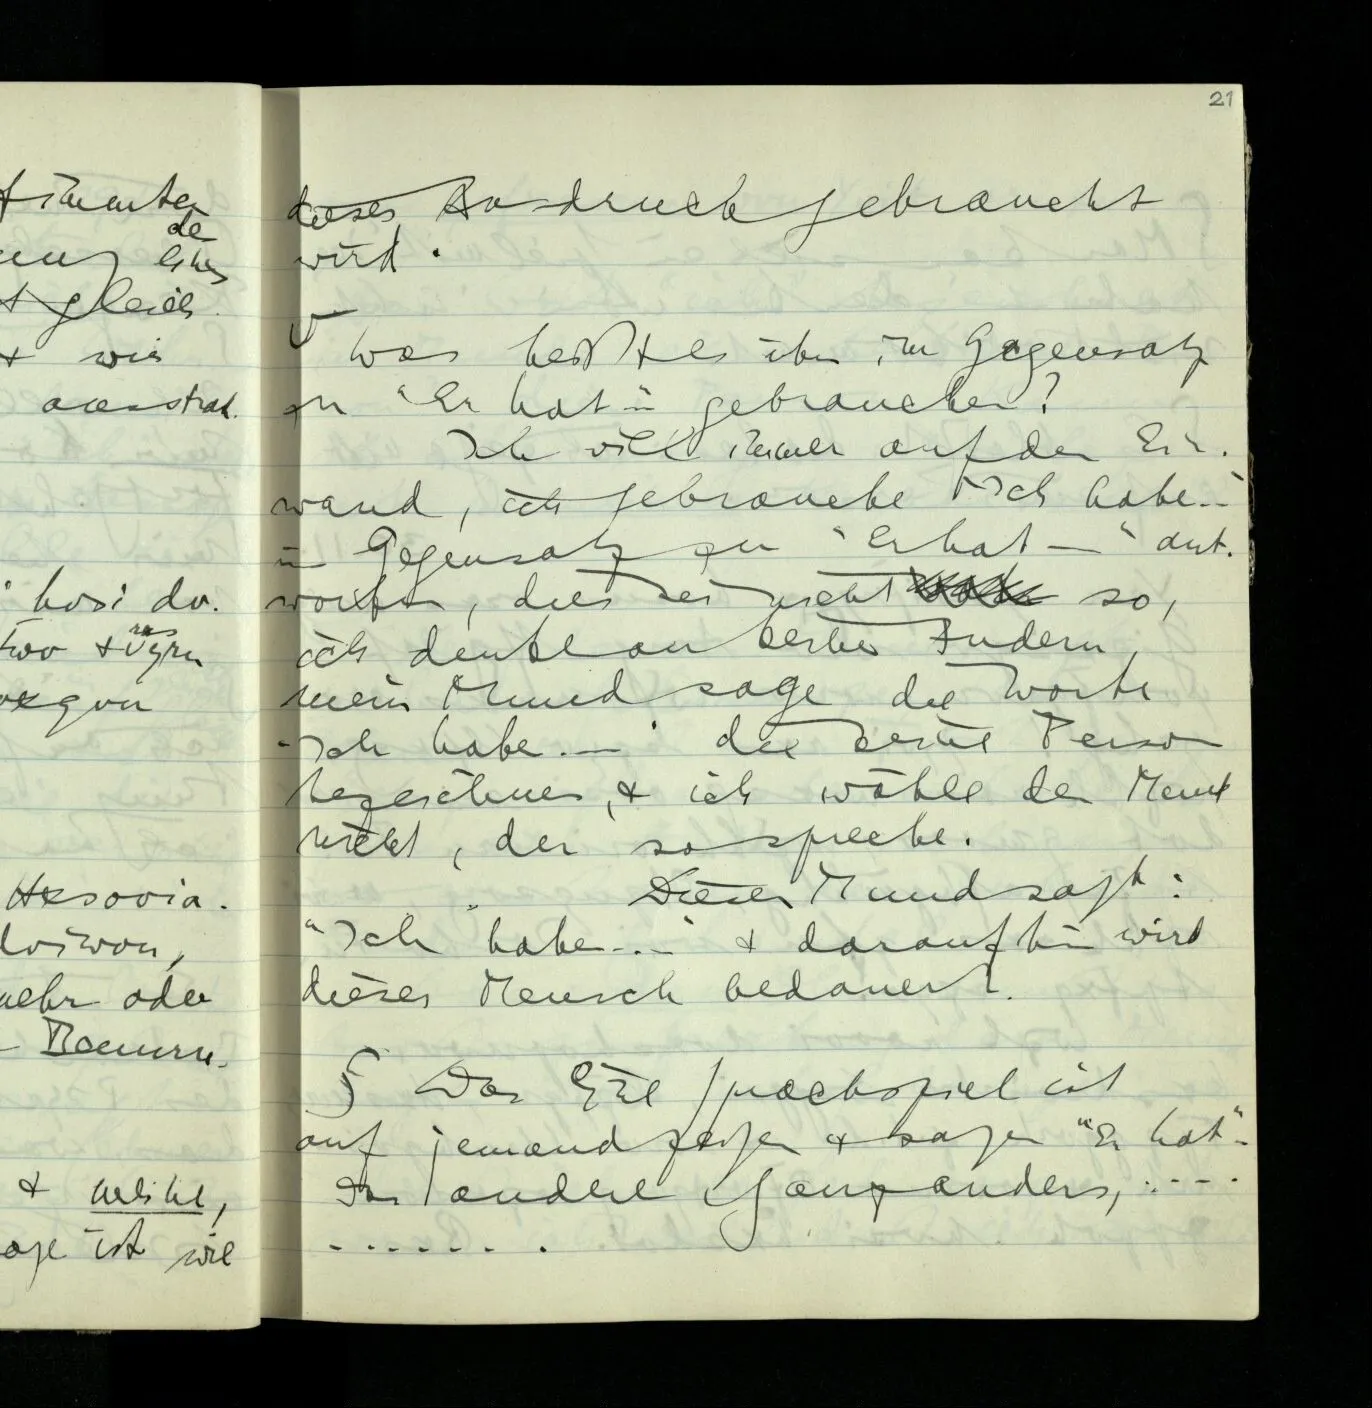 21
timmten
de
eines
gleich
+ wie
ausstrah.
dieser Ausdruck gebraucht
wird.
Was heißt es ihn im Gegensatz
zu "Er hat –" gebrauchen?
Ich will immer auf den Ein-
wand, ich gebrauche "Ich habe..."
im Gegensatz zu "Er hat –" ant-
worten, dies sei nicht so,
ich denke an keinen Andern,
mein Mund sage die Worte
"Ich habe.–" die erste Person
bezeichnen, & ich wähle den Mund
nicht, der so spreche.
Dieser Mund sagt:
"Ich habe..." & daraufhin wird
dieser Mensch bedauert.
§ Das Eine Sprachspiel ist
auf jemand zeigen & sagen "Er hat"–
Das andere ganz anders, ....
.......
hosi do.
Hxsovia.
mehr oder
& welche,
ist wie